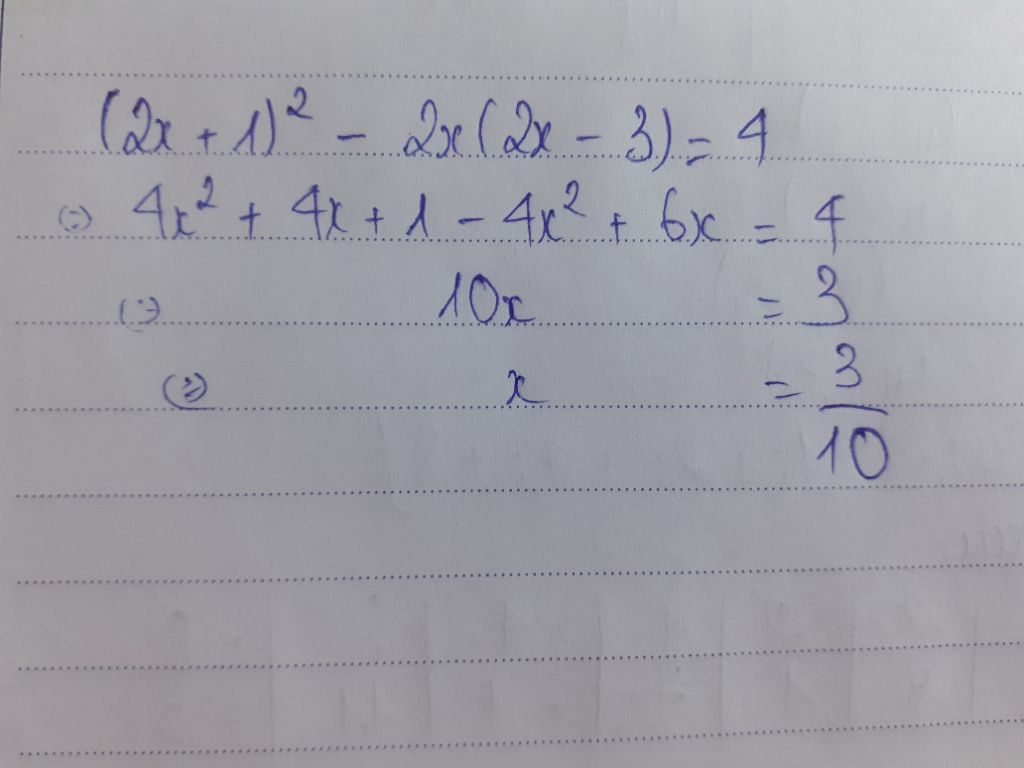 (2x + 1)² - 2x(2x - 3) = 4
(=) 4x² + 4x + 1 - 4x² + 6x = 4
(=) 10x = 3
(=) x = 3/10